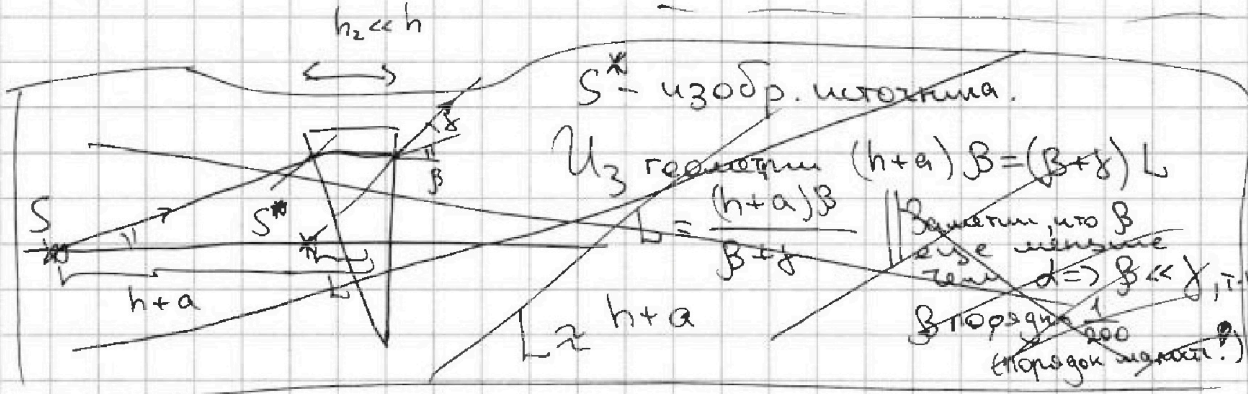 h₂ << h
S* - изобр. источника.
Из геометрии (h+a) β = (β+γ) L
L = (h+a)β / (β+γ)
Заметим, что β
еще меньше
чем α => β << γ, т.
β порядк. 1/200
(порядок малости?)
L ≈ h+a
S
S*
h+a
L
γ
β